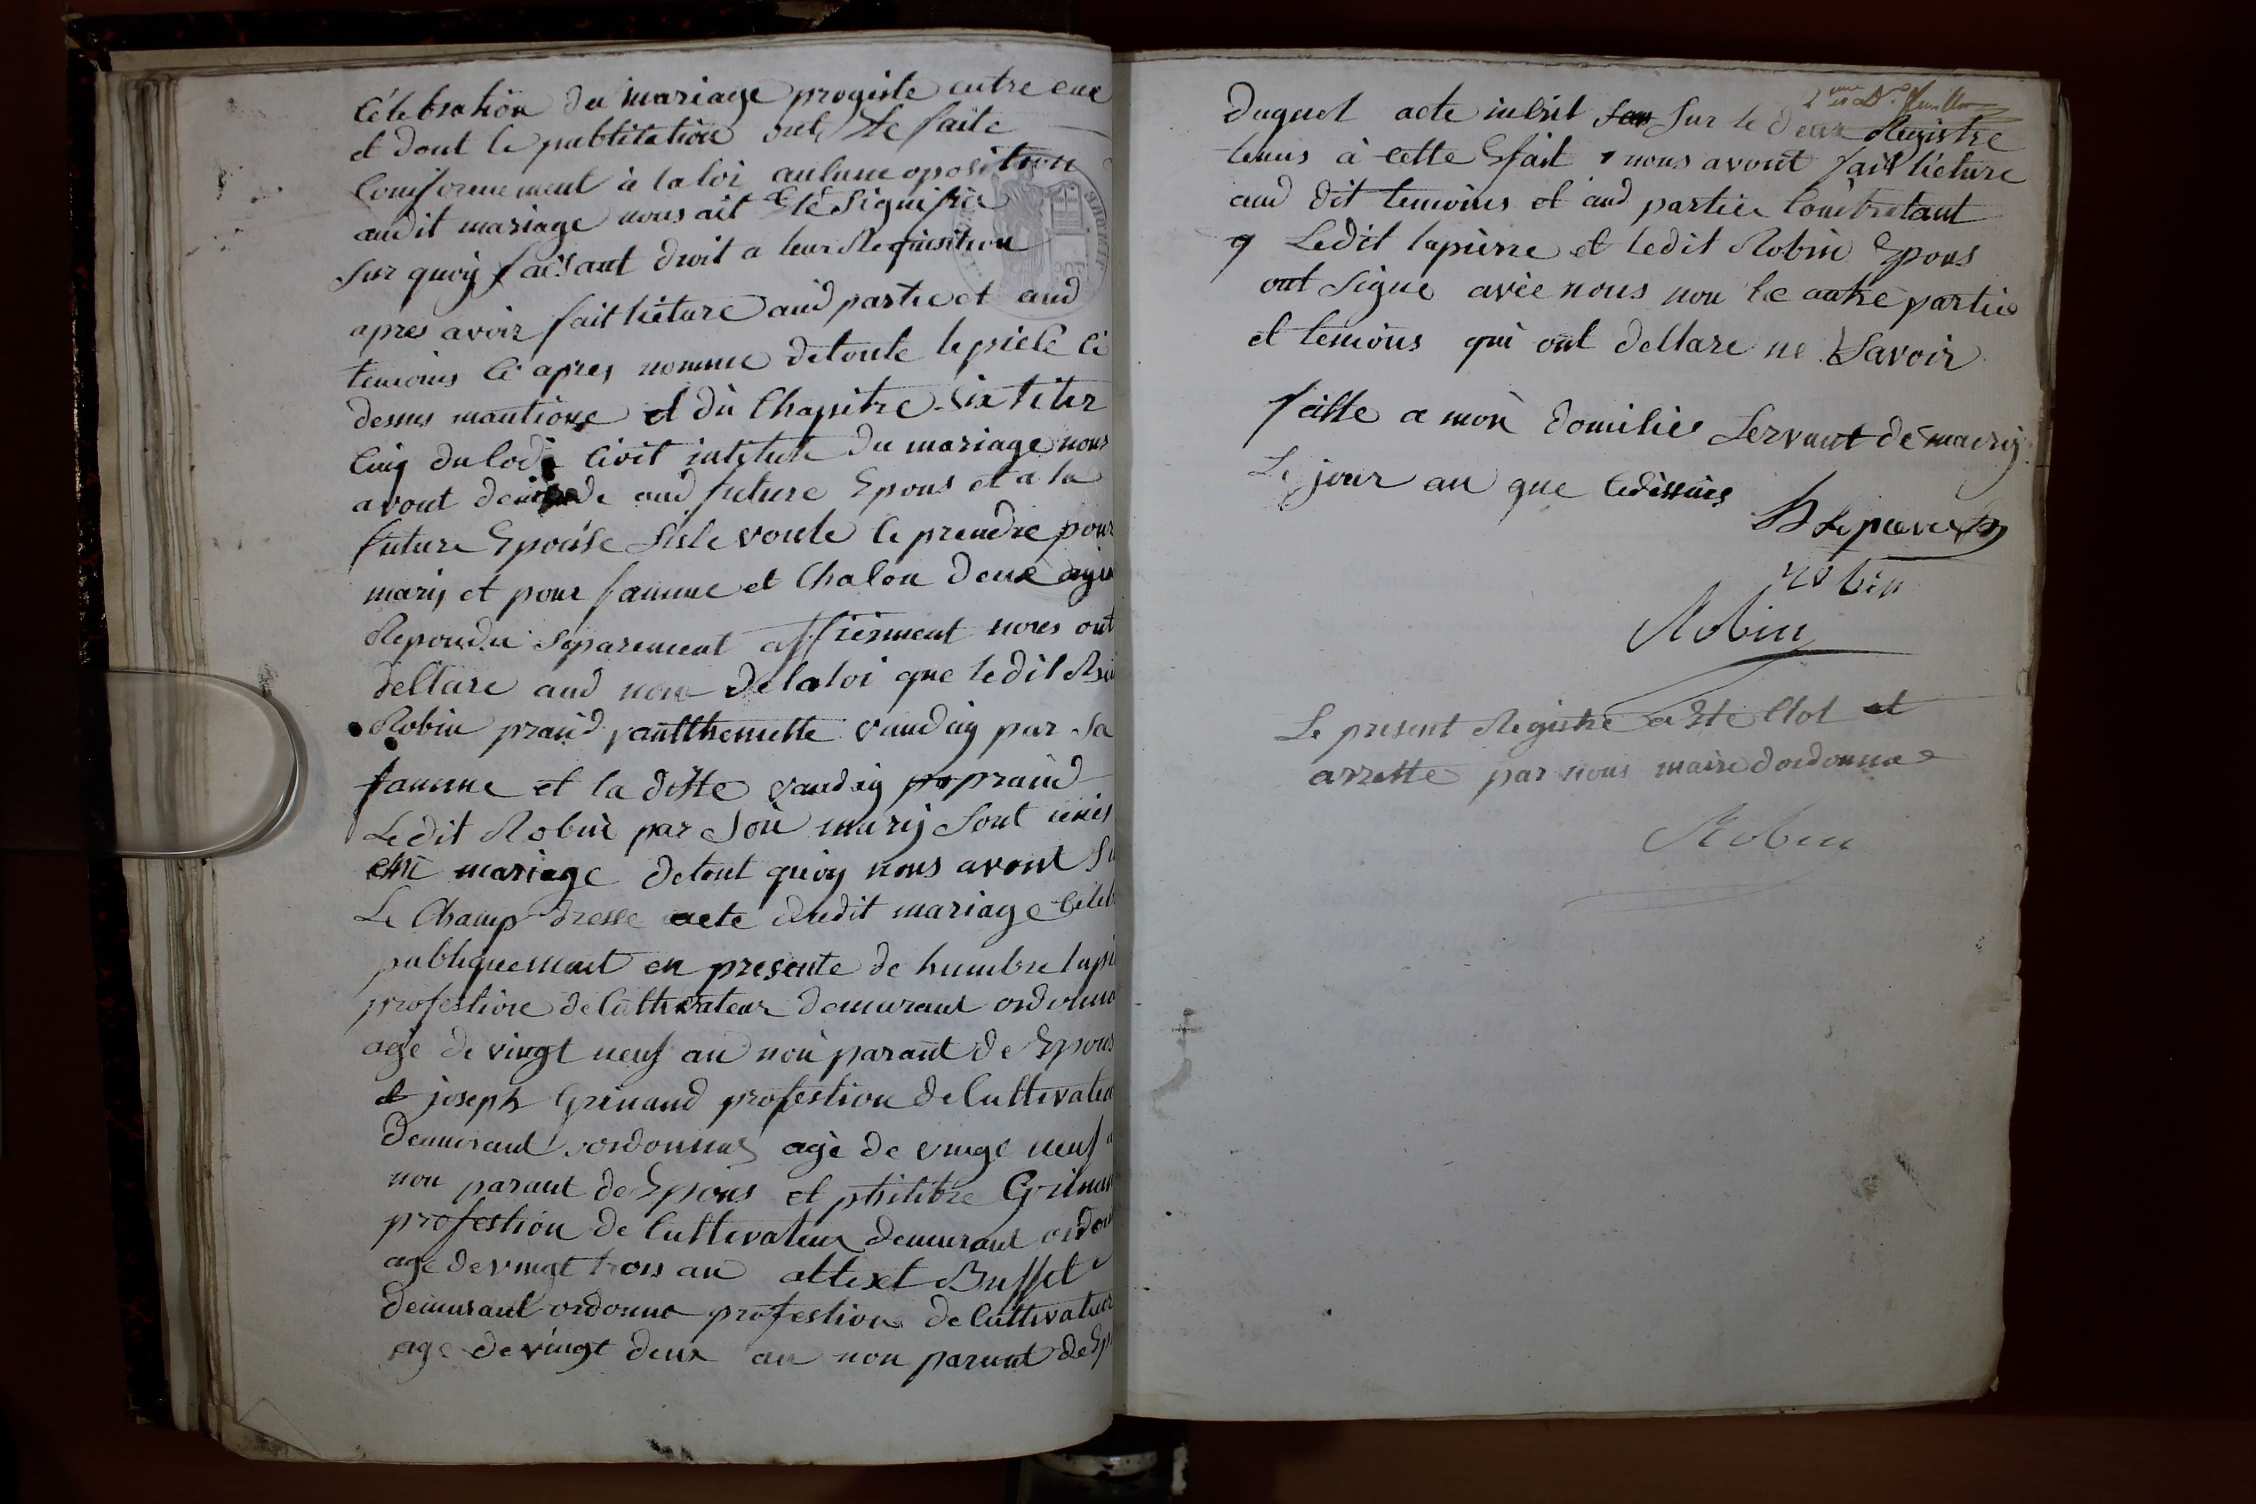 Célébration du mariage progiste entre eux
et dont le publitation ont Ete faite
Confformement à la loi aulune oposition
audit mariage nous ait Eté Signifiée
Sur quoy faisant droit a leur Requisition
apres avoir fait liéture aud partie et aud
temoins Ci apres nomme de toute le piele Ci
dessus mantione et du Chapitre Six titer
Cinq du Code Civil intitule Du mariage nous
avont demande aud future Epous et a la
future Epouse Sisle voule le prendre pour
mary et pour famme et Chalon deux ayin
Repondu Separement affirément nous ont
dellare aud nom de la loi que ledit
Robin praind vauday par sa
famme et la ditte vauday praind
Ledit Robin par Son mary sont unis
en mariage de tout quoy nous avont Su
Le Champ dresse acte dudit mariage Celeb
publiquement en presente de humbre lapi
profestion de Cultivateur demurant ordonna
age de vingt neuf an non parant de Epous
et joseph Grinand profestion de Cultivateu
demurant ordonnas age de vingt neuf a
non parant de Epous et philibre Grinan
profestion de Cultivateur demurant ordon
age de vingt trois an allexl Buffet
demurant ordonna profestion de Cultivateur
age de vingt deux an non parant de Ep
2 eme
Duquel acte inbril Sur le deux Registre
tenus à cette Efait nous avont fait liéture
aud dit temoins et aud partie Contretant
q Ledit lapierre et ledit Robin Epous
ont Signe avée nous non le autre partie
et temoins qui ont dellare ne Savoir
faitte a mon domilie Servant de mairy
Le jour an que Cedessues
h lapierre
robin
Robin
Le present Registre a Ete Clot et
arrette par nous maire dordonnas
Robin